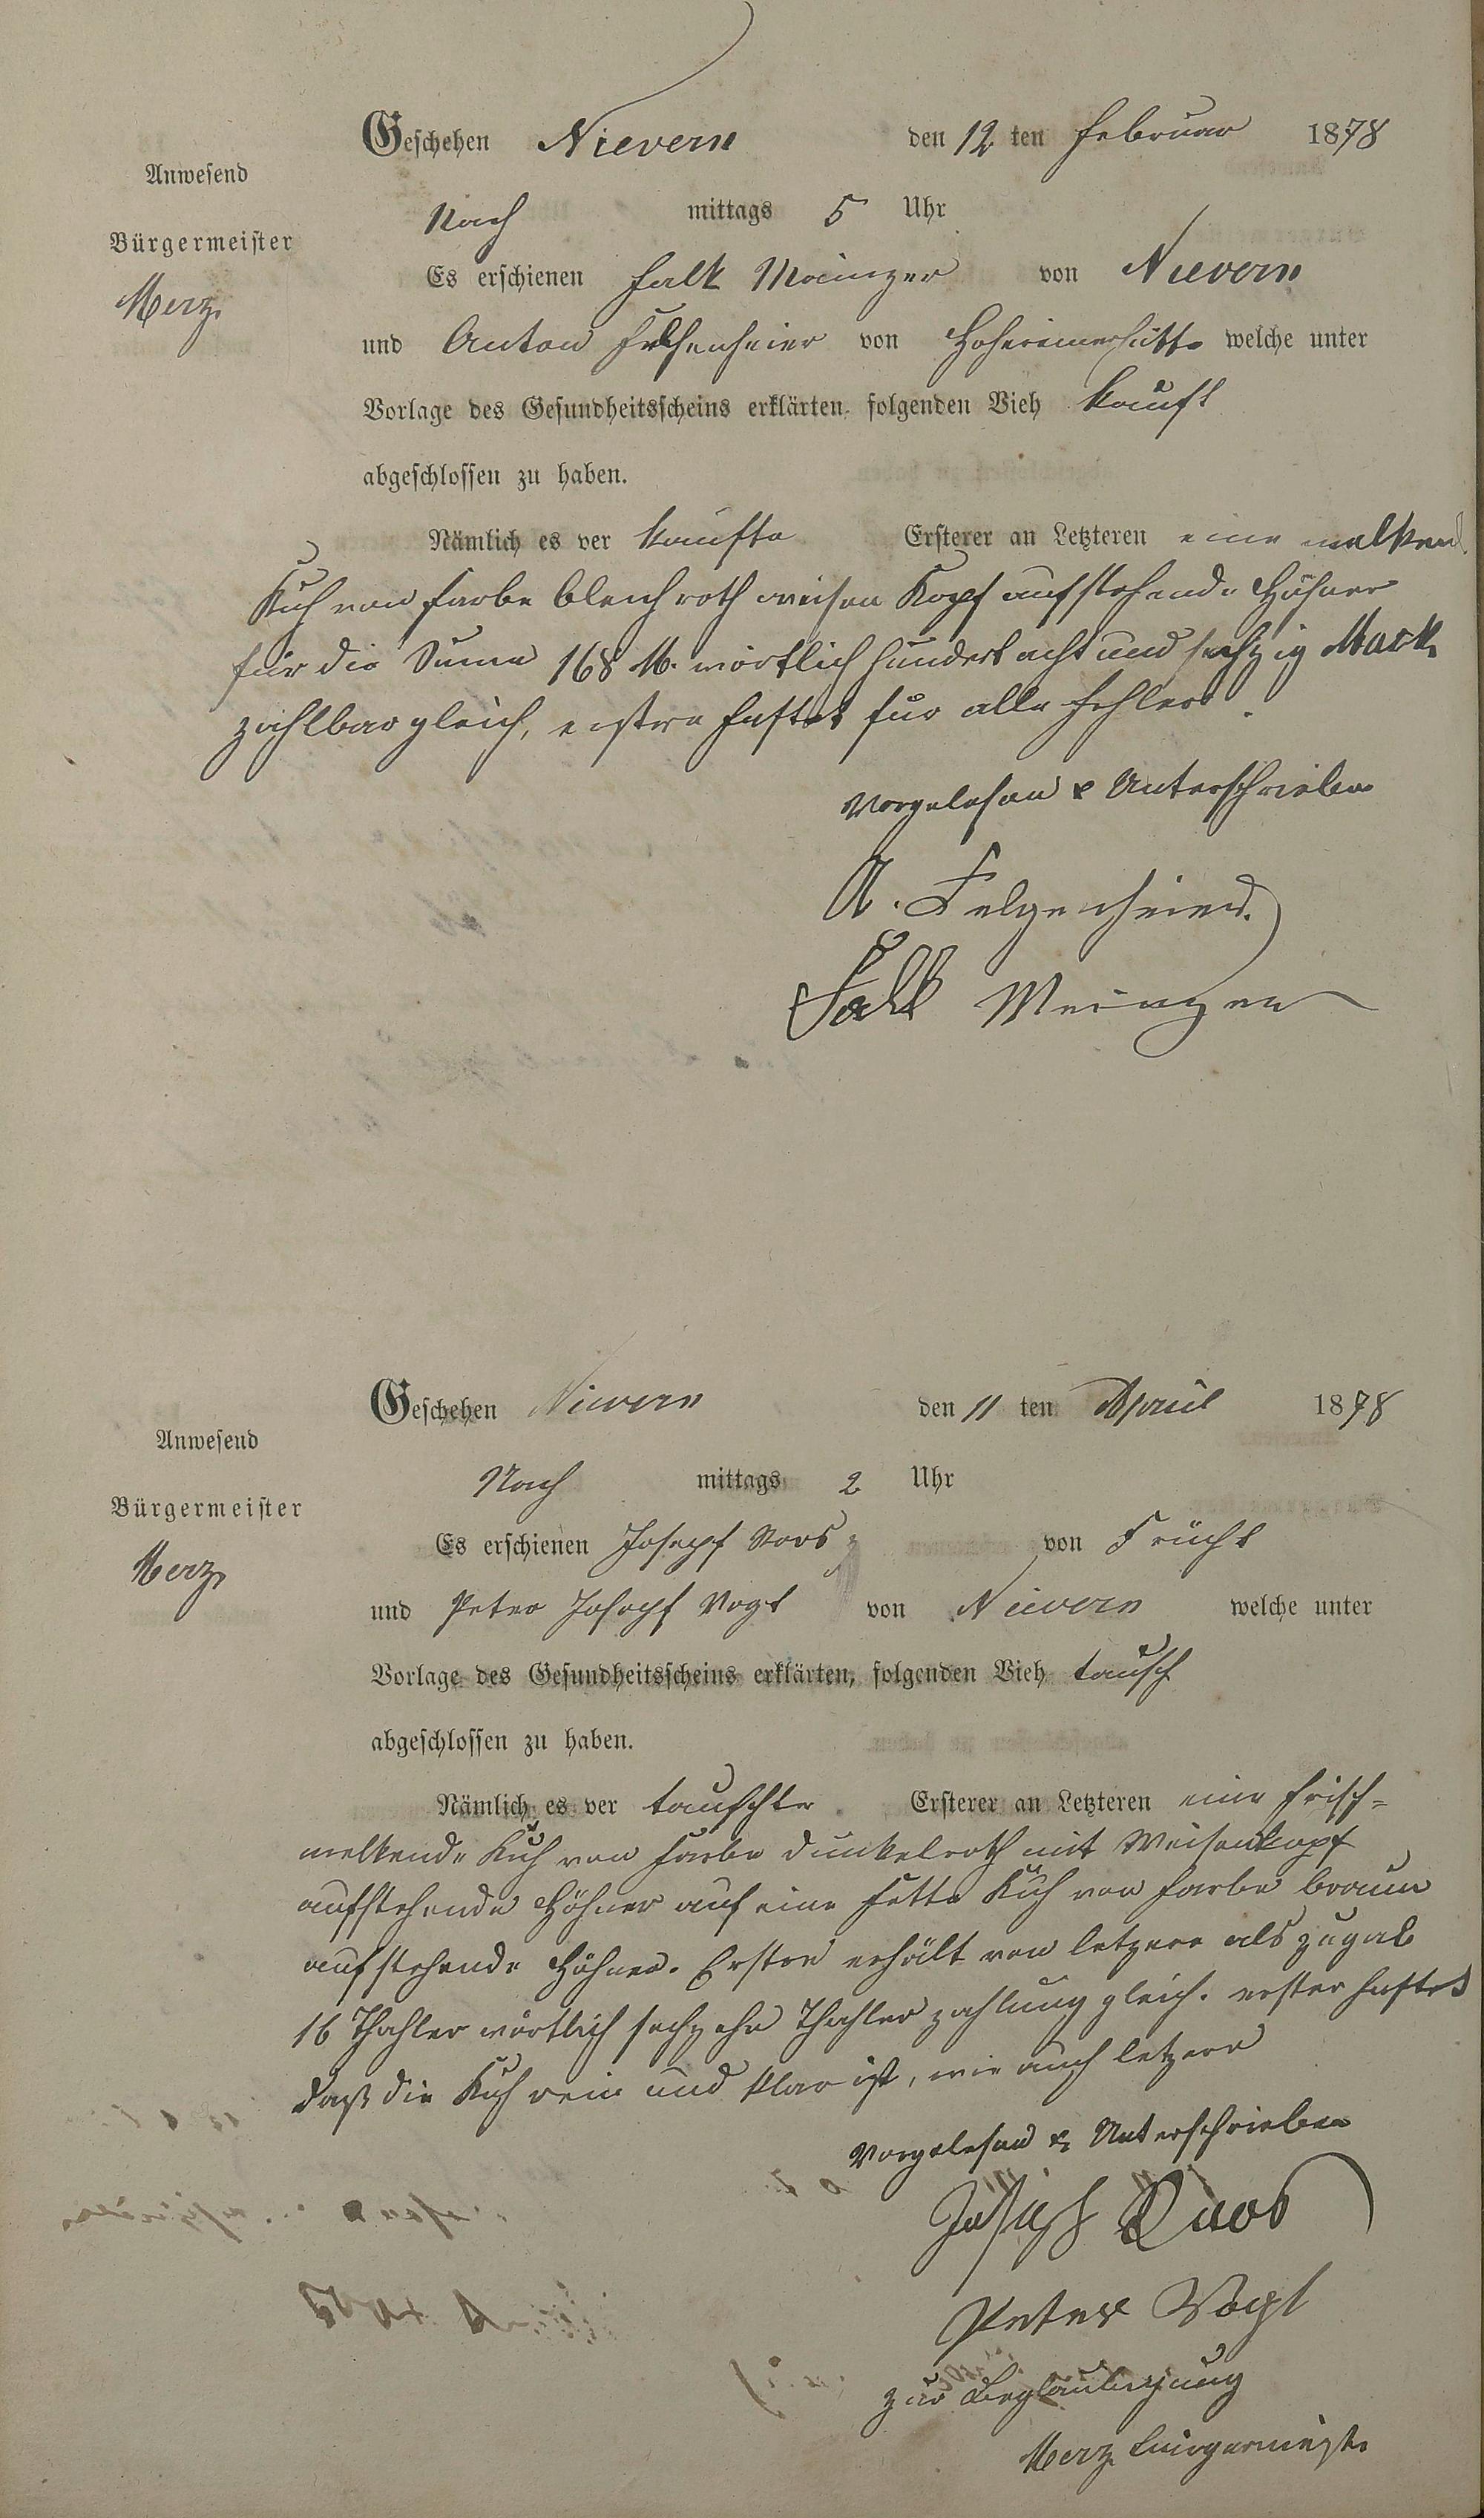 Geschehen Nievern den 12 ten Februar 1878
Anwesend
Nach mittags 5 Uhr
Bürgermeister
Merz
Es erschienen Falk Mainzer von Nievern
und Anton von welche unter
Vorlage des Gesundheitsscheins erklärten folgenden Vieh kauft
abgeschlossen zu haben.
Nämlich es ver kaufte Ersterer an Letzteren eine melkend
Kuh von Farbe bleichroth weisen Kopf aufstehende Höhner
für die Sume 168 M. wörtlich hundert acht und sechzig Mark
zahlbar gleich, erstere haftet für alle Fehler.
Vorgelesen & Unterschrieben
A.
Falk Meinzer
Geschehen Nievern den 11 ten April 1878
Anwesend
Nach mittags 2 Uhr
Bürgermeister
Merz
Es erschienen Joseph von Frücht
und Peter Joseph Vogt von Nievern welche unter
Vorlage des Gesundheitsscheins erklärten, folgenden Vieh tausch
abgeschlossen zu haben.
Nämlich es ver tauschte Ersterer an Letzteren eine frisch=
melkende Kuh von Farbe dunkelroth mit Weisenkopf
aufstehende Höhner auf eine fette Kuh von Farbe braun
aufstehende Höhner. Erstere erhält von letzere als zugab
16 Thahler wörtlich sechzehn Thahler zahlung gleich. erster haftet
daß die Kuh rein und klar ist, wie auch letzere
Vorgelesen & Unterschrieben
Joseph
Peter Vogt
zur Beglaubigung
Merz Bürgermeister